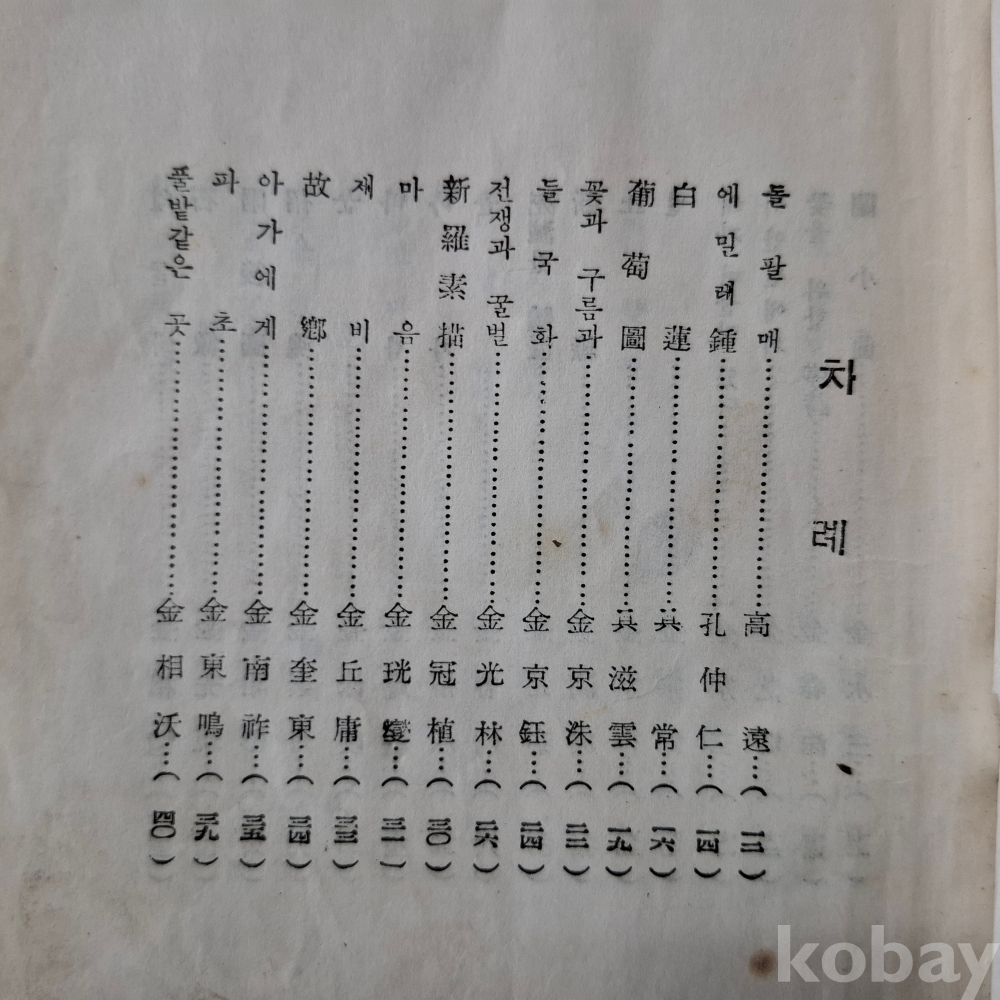 차례
돌팔매……高遠…(一二)
에밀레鍾……孔仲仁…(一四)
白蓮……具常…(一六)
葡萄圖……具滋雲…(一九)
꽃과 구름과……金京洙…(二二)
들국화……金京鈺…(二四)
전쟁과 꿀벌……金光林…(二六)
新羅素描……金冠植…(三〇)
마음……金珖燮…(三一)
재비……金丘庸…(三三)
故鄕……金奎東…(三四)
아가에게……金南祚…(三五)
파초……金東鳴…(三九)
풀밭같은 곳……金相沃…(四〇)
kobay